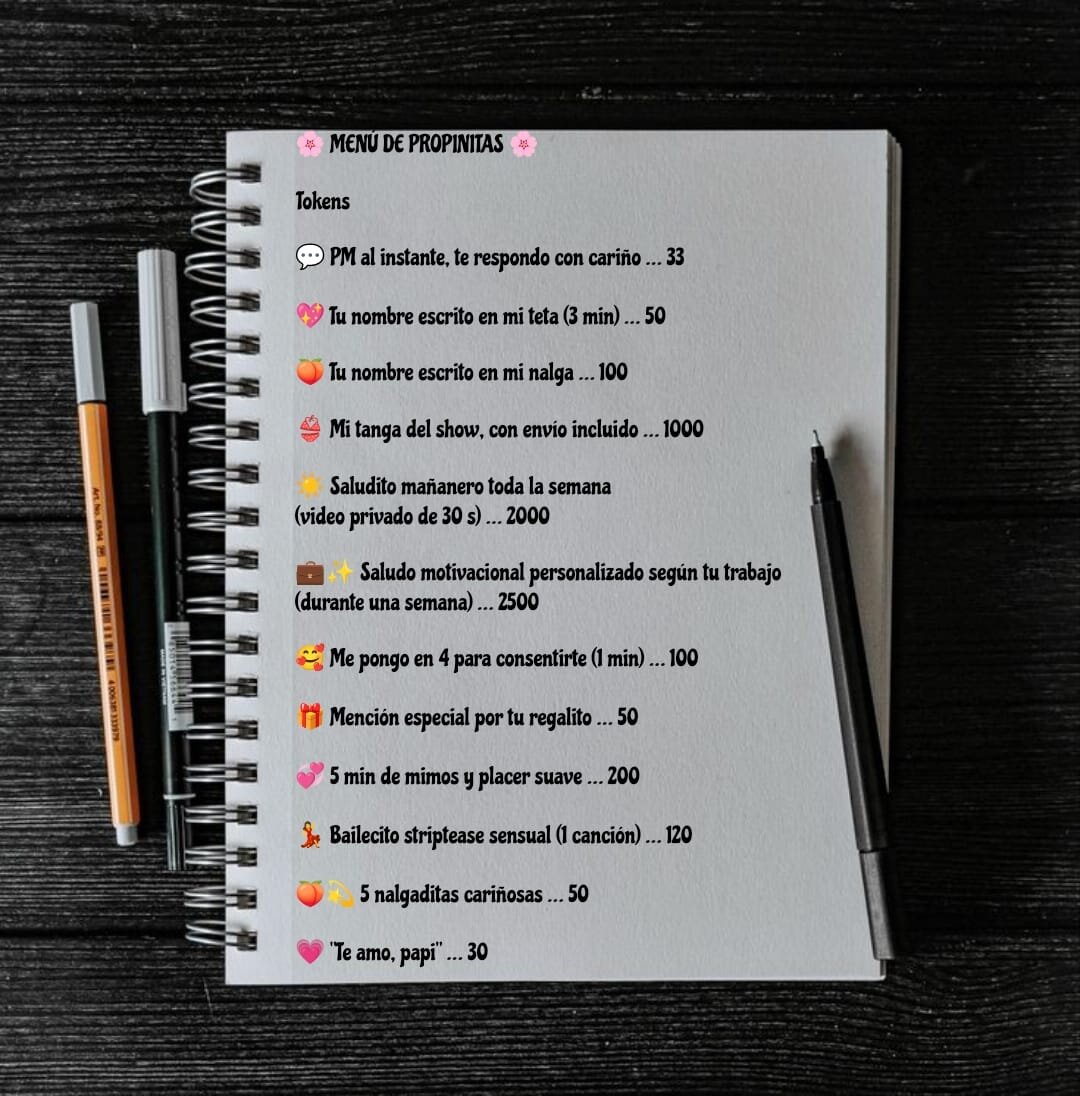 🌸 MENÚ DE PROPINITAS 🌸
Tokens
💬 PM al instante, te respondo con cariño ... 33
💖 Tu nombre escrito en mi teta (3 min) ... 50
🍑 Tu nombre escrito en mi nalga ... 100
👙 Mi tanga del show, con envío incluido ... 1000
☀️ Saludito mañanero toda la semana
(video privado de 30 s) ... 2000
💼✨ Saludo motivacional personalizado según tu trabajo
(durante una semana) ... 2500
🥰 Me pongo en 4 para consentirte (1 min) ... 100
🎁 Mención especial por tu regalito ... 50
💞 5 min de mimos y placer suave ... 200
💃 Bailecito striptease sensual (1 canción) ... 120
🍑💫 5 nalgaditas cariñosas ... 50
💗 "Te amo, papi" ... 30